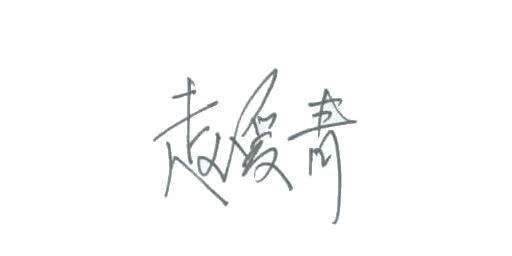 赵爱青